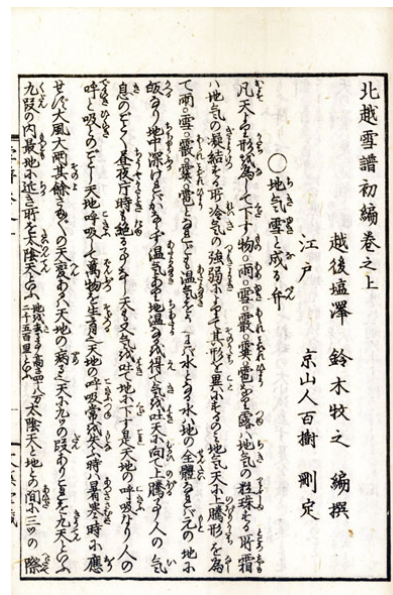 北越雪譜初編巻之上
越後塩澤　鈴木牧之　編撰
江戸　京山人百樹　刪定
○地気雪と成る弁
凡天より形を為して下す物○雨○雪○霰○霙○雹なり露ハ地気の粒珠する所霜
ハ地気の凝結する所冷気の強弱によりて其形を異にするのミ地気天に上騰形を為
て雨○雪○霰○霙○雹となれども温気をうくれバ水となる水ハ地の全體なれバ元の地に
皈るなり地中深けれバかならず温気あり地温なるを得て気を吐天に向て上騰事人の気
息のごとく昼夜片時も絶る事なし天も又気を吐て地に下す是天地の呼吸なり人の
呼と吸とのごとし天地呼吸して萬物を生育也天地の呼吸常を失ふ時ハ暑寒時に應
ぜず大風大雨其餘さま〴〵の天変あるハ天地の病る也天に九ツの段ありこれを九天といふ
九段の内最地に近き所を太陰天といふ地を去る事高さ四十八万二千五百里といふ太陰天と地との間に三ツの際